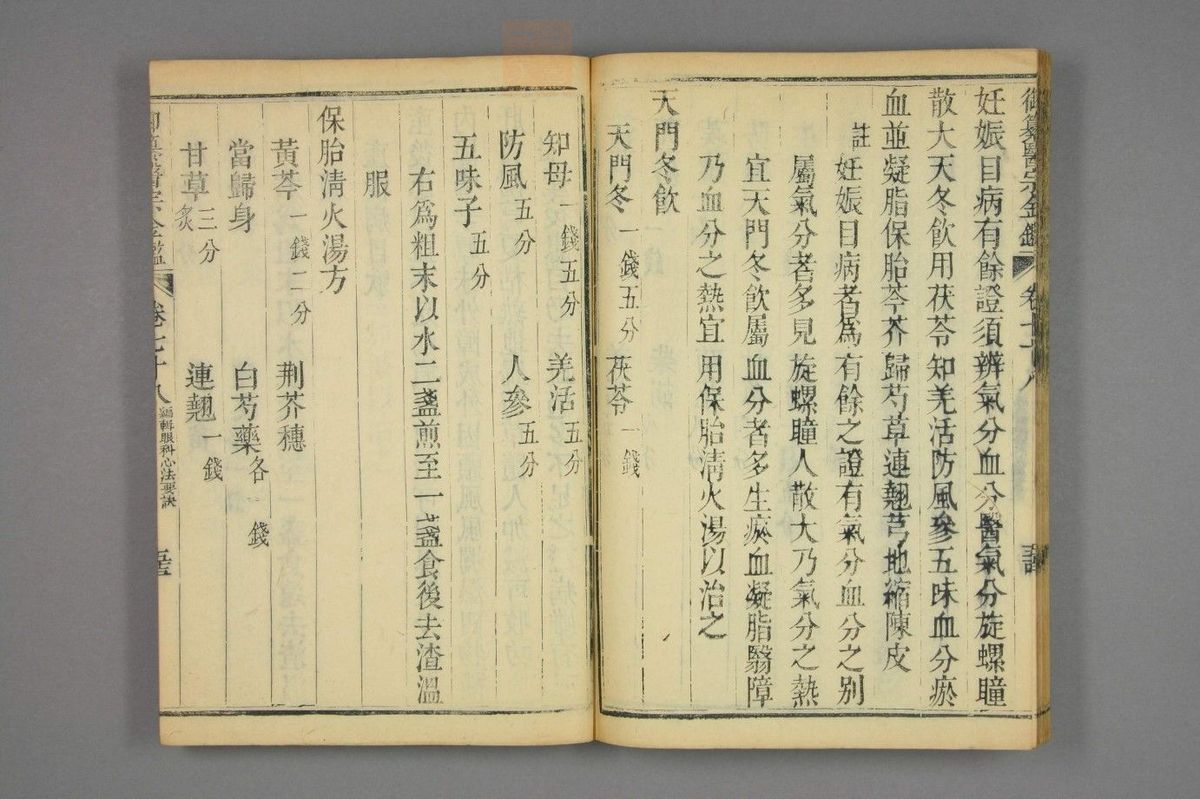 御纂醫宗金鑑 卷七十八
妊娠目病有餘證須辨氣分血分醫氣分旋螺瞳
散大天冬飲用茯苓知羌活防風參五味血分瘀
血並凝脂保胎芩芥歸芍草連翹芎地縮陳皮
註
妊娠目病者為有餘之證有氣分血分之別
屬氣分者多見旋螺瞳人散大乃氣分之熱
宜天門冬飲屬血分者多生瘀血凝脂翳障
乃血分之熱宜用保胎清火湯以治之
天門冬飲
天門冬一錢五分 茯苓一錢
知母一錢五分 羌活五分
防風五分 人參五分
五味子五分
右爲粗末以水二盞煎至一盞食後去渣溫
服
保胎清火湯方
黃芩一錢二分 荆芥穗
當歸身 白芍藥各一錢
甘草炙三分 連翹一錢
御纂醫宗金鑑 卷七十八 編輯眼科心法要訣